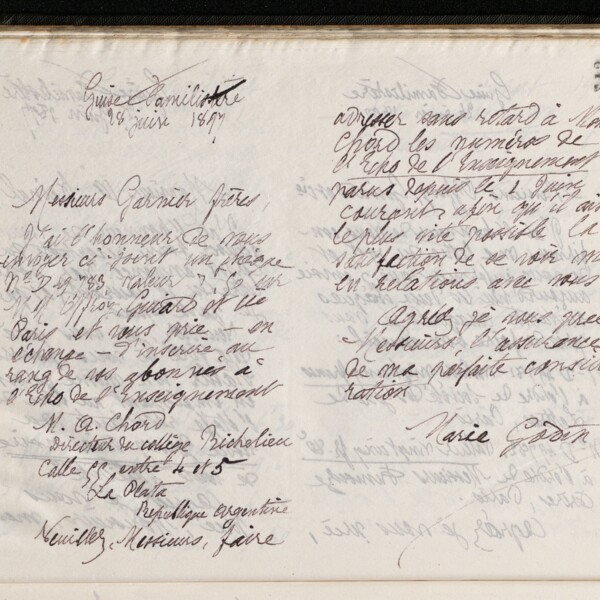 Guise Familistère
28 juin 1897
Messieurs Garnier frères,
J'ai l'honneur de vous
envoyer ci-joint un chèque
valeur sur
Guiard et Cie
Paris et vous prie – en
échange – d'inscrire au
rang de vos abonnés à
l'Echo de l'Enseignement
M. A. Chord
Directeur du collège Richelieu
Calle 55 entre 4 et 5
La Plata
République argentine
Veuillez, Messieurs, faire
adresser sans retard à
Chord les numéros de
l'Echo de l'Enseignement
parus depuis le 1 Juin
courant, afin qu'il ait
le plus vite possible la
satisfaction de se voir
en relations avec vous
Agréez je vous prie
Messieurs, l'assurance
de ma parfaite considé
ration
Marie Godin